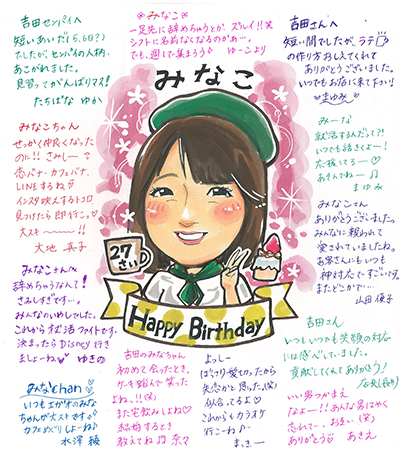 吉田センパイへ
短いあいだ(5、6日?)
でしたが、センパイの人柄、
あこがれました。
見習ってがんばりマス!
たちばな ゆか
みなこ
一足先に辞めちゃうとか、ズレイ!!笑
シフトに名前なくなるのかぁ…。
でも、週1で集まろう ゆーこより
吉田さんへ
短い間でしたが、ラテ
の作り方おしえてくれて
ありがとうございました。
いつでもお店に来て下さい!
まゆみ
みなこ
みなこちゃん
せっかく仲良くなった
のに!! さみしー
恋バナ・カフェバナ、
LINEするね
インスタ映えするトコロ
見つけたら即行こっ。
大スキ〜〜!!
大地 真子
みーな
就活するんだって?!
いつでも話きくよー!
応援してるー
あそんでねー
まゆみ
みなこさん
ありがとうございました。
みんなに親われて
愛されていましたね。
お客さんにもいつも
神対応で すごいです。
またどこかで…
山田 優子
みなこさんへ
辞めちゃうなんて!
さみしすぎです…。
みんなのいやしでした。
これから就活ファイトです。
決まったら Disney 行き
ましょーね ゆきの
27
さい
Happy Birthday
みなとhan
いつもエガオのみな
ちゃんが大スキです。
カフェめぐりしよーね♪
水澤 綾
吉田のみなちゃん
初めて会ったとき、
ケーキ踏んで笑った
よね。!!(笑)
また宅飲みしよね
結婚するとき
教えてね 奈々
よっしー
ばっさり髪を切ったから
失恋かと思った。(笑)
似合ってるよ
これからもカラオケ
行こーね♪
まっきー
吉田さん
いつもいつも笑顔の対応
には感心していました。
貢献してくれてありがとう!
店長(長谷川)
いい男つかまえ
なよー!! あんな男はやく
忘れて…。おまい。(笑)
ありがとう あきえ